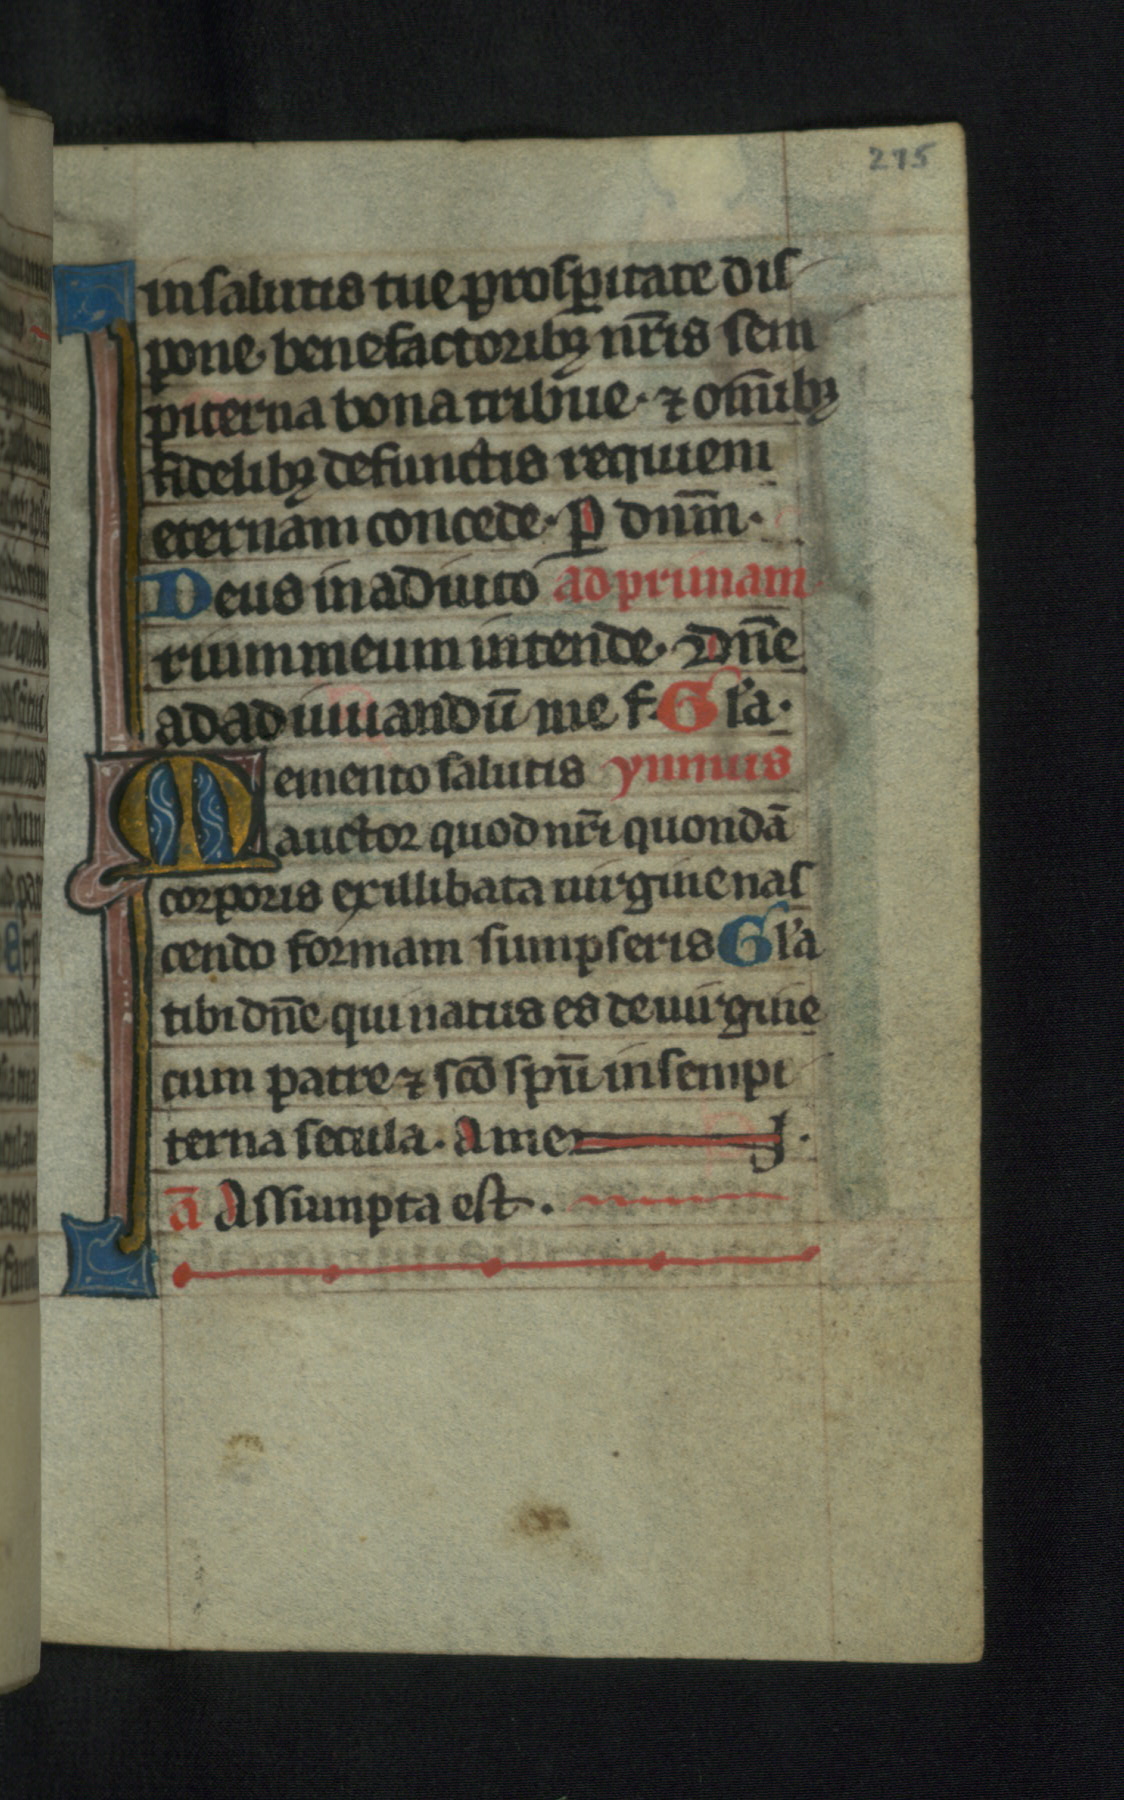 275
in salutis tue prosꝑitate dis
pone· benefactoribꝫ nr̄is sem
piterna bona tribue· ⁊ om̄ibꝫ
fidelibꝫ defunctis requiem
eternam concede· ꝑ dnm̄·
Deus in adiuto ad primam
rium meum intende· Dn̄e
ad adiuuandū me f· Gl'a·
Memento salutis ymnus
auctor quod nr̄i quondā
corporis ex illibata uirgine nas
cendo formam sumpseris Gl'a
tibi dn̄e qui natus es de uirgine
cum patre ⁊ sc̄o sp̄u in sempi
terna secula· Amen·
a᷆ Assumpta est·